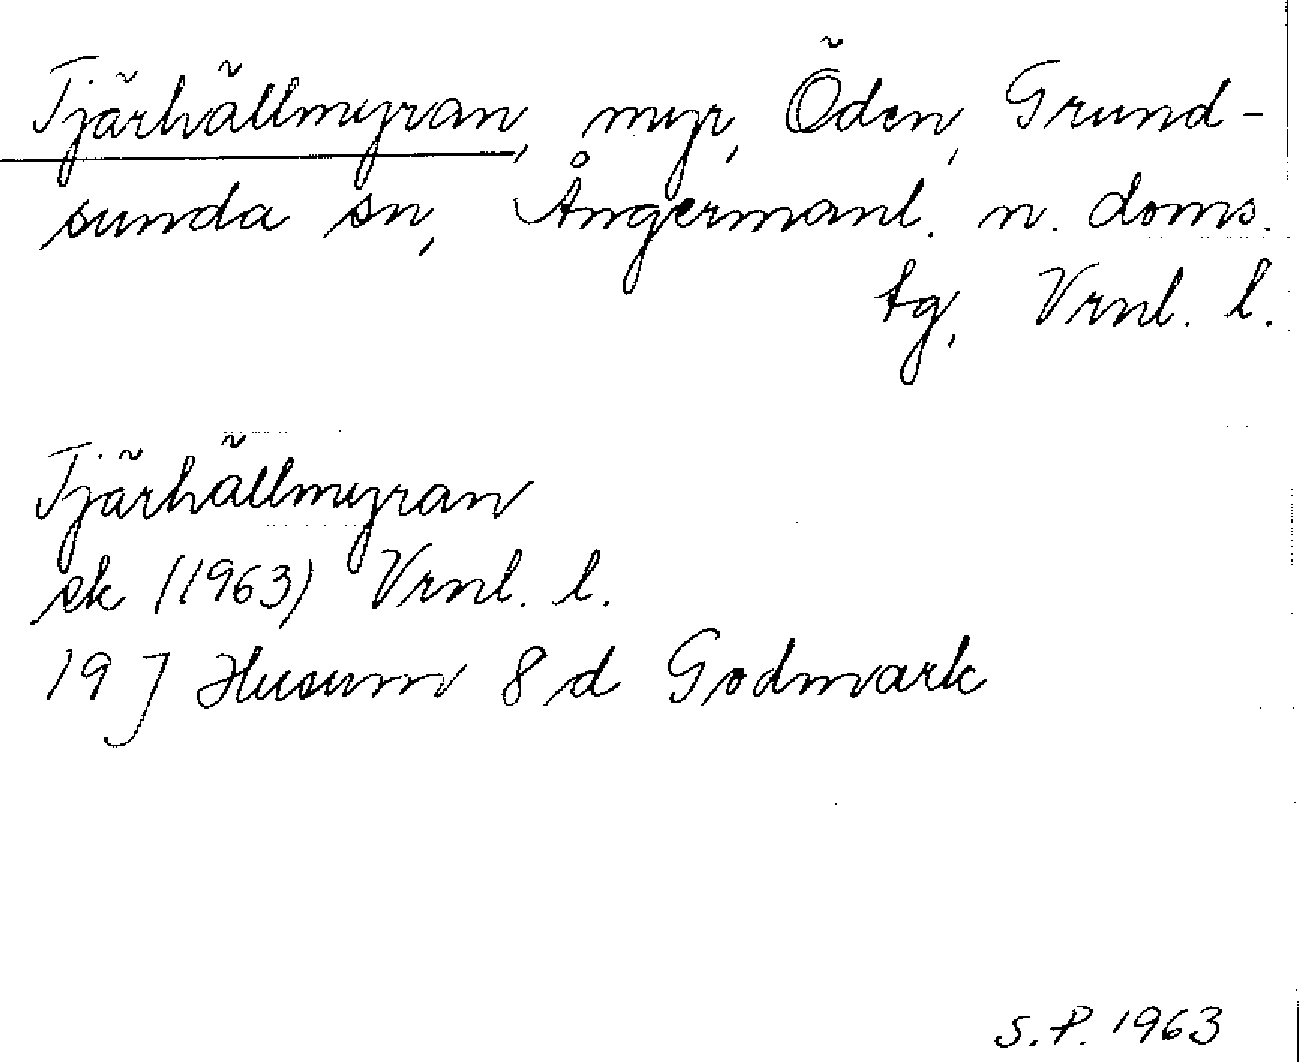 Tjärhällmyran, myr, Öden, Grund-
sunda sn, Ångermanl. n. doms.
tg, Vrnl. l.
Tjärhällmyran
sk (1963) Vrnl. l.
19 J Husum 8 d Godmark
S.P. 1963